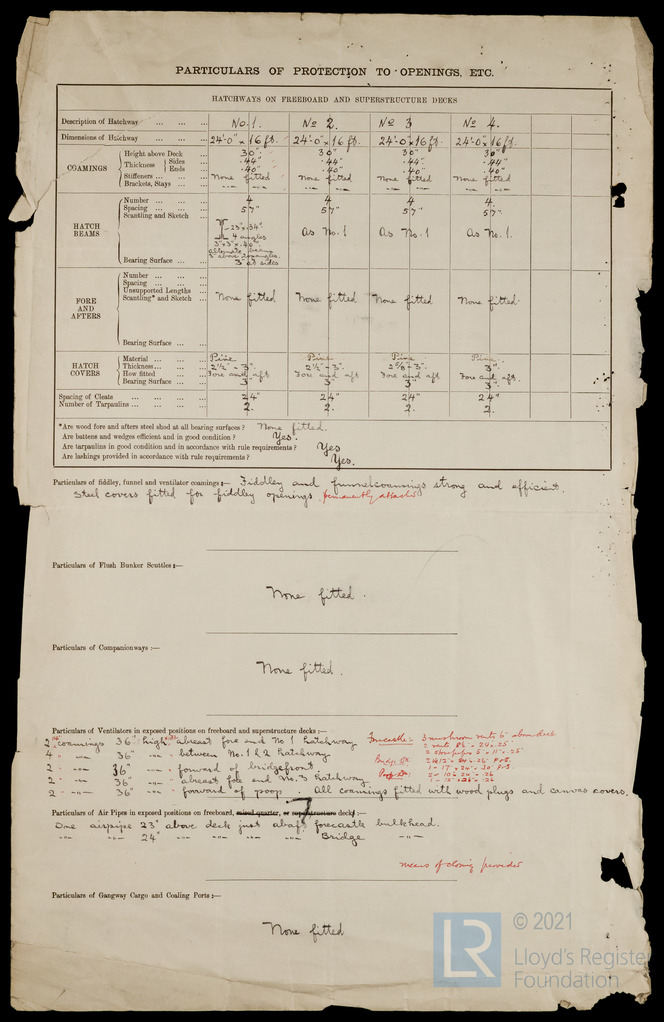 PARTICULARS OF PROTECTION TO OPENINGS, ETC.
HATCHWAYS ON FREEBOARD AND SUPERSTRUCTURE DECKS
Description of Hatchway ... ... ... No 1. No 2. No 3 No 4.
Dimensions of Hatchway ... ... ... 24'-0" x 16 ft. 24'-0" x 16 ft. 24'-0" x 16 ft. 24'-0" x 16 ft.
COAMINGS
Height above Deck ... 30" 30" 30" 30"
Thickness Sides ... .44" .44" .44" .44"
Ends ... .40" .40" .40" .40"
Stiffeners ... ... ... None fitted None fitted None fitted None fitted
Brackets, Stays ... ...
HATCH BEAMS
Number ... ... ... 4 4 4 4
Spacing ... ... ... 57" 57" 57" 57"
Scantling and Sketch ... As No. 1 As No. 1 As No. 1.
4 angles
3" x 3" x .40"
alternate beams
Bearing Surface ... ... 3" at sides
FORE AND AFTERS
Number ... ... ...
Spacing ... ... ...
Unsupported Lengths
Scantling* and Sketch ... None fitted None fitted None fitted None fitted
Bearing Surface ... ...
HATCH COVERS
Material ... ... ... Pine Pine Pine Pine
Thickness ... ... ... 2½" - 3" 2½" - 3" 2⅝" - 3" 3"
How fitted ... ... Fore and aft Fore and aft Fore and aft Fore and aft.
Bearing Surface ... ... 3" 3" 3" 3"
Spacing of Cleats ... ... ... 24" 24" 24" 24"
Number of Tarpaulins ... ... ... 2. 2. 2. 2.
*Are wood fore and afters steel shod at all bearing surfaces? None fitted.
Are battens and wedges efficient and in good condition? Yes.
Are tarpaulins in good condition and in accordance with rule requirements? Yes
Are lashings provided in accordance with rule requirements? Yes.
Particulars of fiddley, funnel and ventilator coamings:— Fiddley and funnel coamings strong and efficient.
Steel covers fitted for fiddley openings permanently attached
Particulars of Flush Bunker Scuttles:—
None fitted.
Particulars of Companionways:—
None fitted.
Particulars of Ventilators in exposed positions on freeboard and superstructure decks:—
2 coamings 36" high abreast fore end No 1 hatchway
4 " " 36" " between No. 1 & 2 hatchway
2 " " 36" " forward of bridgefront.
2 " " 36" " abreast fore end No. 3 hatchway
2 " " 36" " forward of poop. All coamings fitted with wood plugs and canvas covers.
Forecastle: 3 mushroom vents 6" above deck
Bridge Dk
Poop Dk
Particulars of Air Pipes in exposed positions on freeboard, raised quarter, or superstructure decks:—
One airpipe 23" above deck just abaft forecastle bulkhead.
" " 24" " " Bridge "
means of closing provided
Particulars of Gangway Cargo and Coaling Ports:—
None fitted
LR
© 2021
Lloyd's Register
Foundation